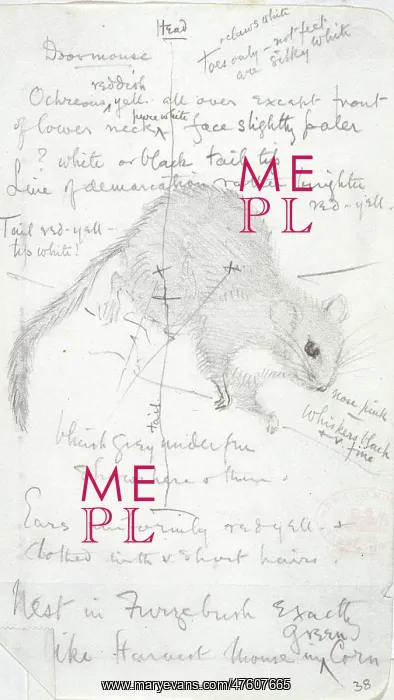 Head
Doormouse
& claws white
Toes only - not feet
are silky white
reddish
Ochreous yell. all over except front
pure white
of lower neck, face slightly paler
? white or black tail tip
Line of demarcation rather brighter
red-yell.
Tail red-yell-
tip white?
ME
PL
tail
nose pink
Whiskers black
& v fine
bluish grey under fur
here & there.
ME
PL
Ears uniformly red yell. &
clothed with v short hairs.
Nest in Furzebush Exactly
Green
like Harvest Mouse in Corn
38
www.maryevans.com/47607665